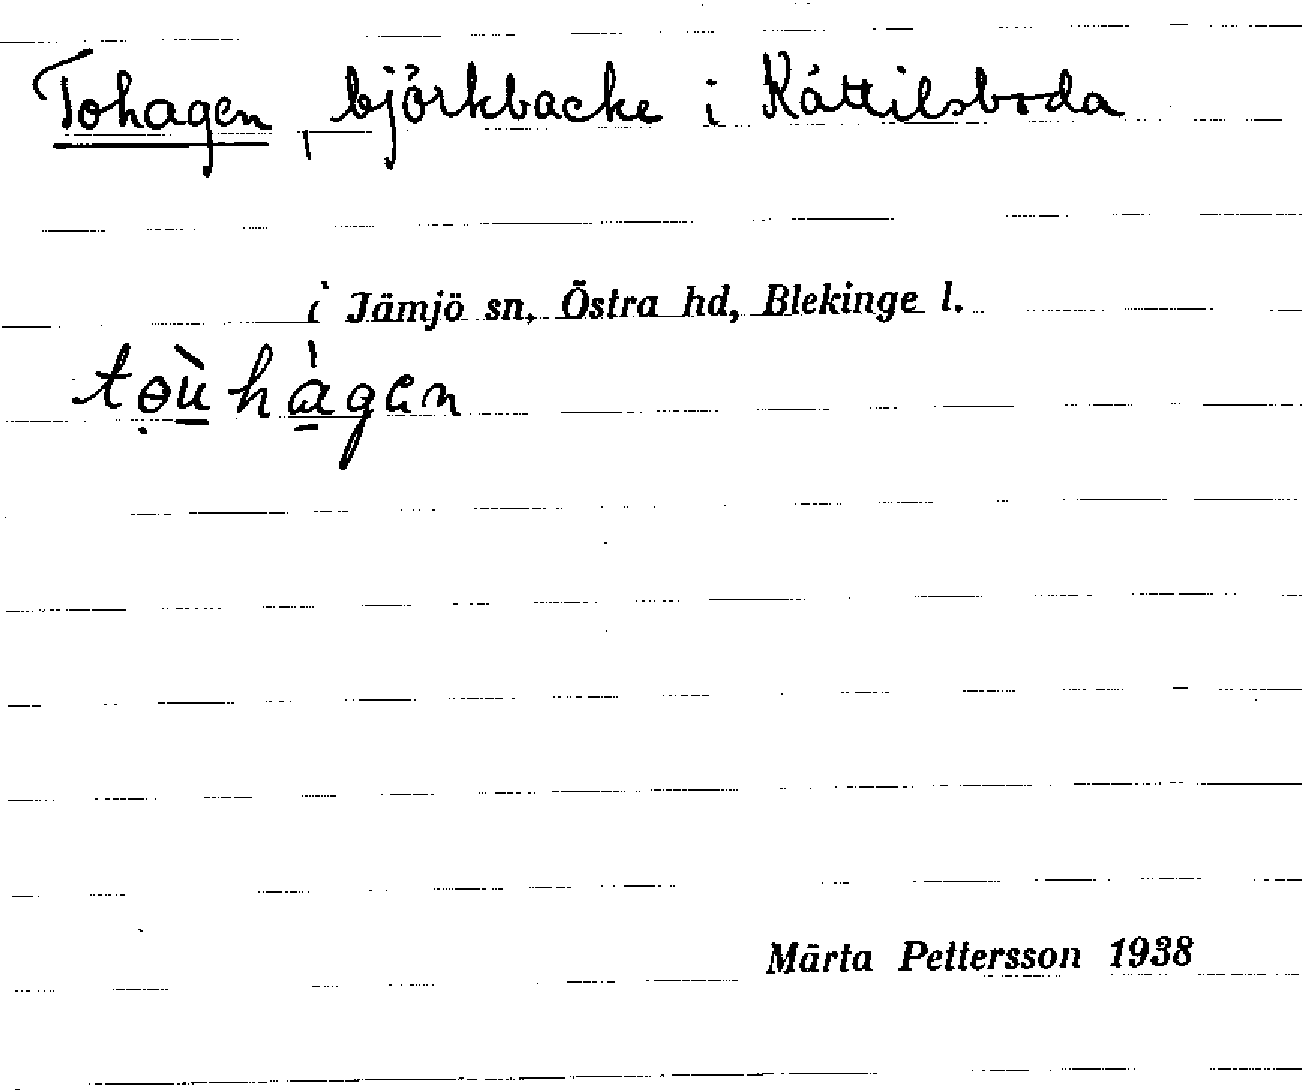 Tohagen, björkbacke i Kättilsboda
i Jämjö sn, Östra hd, Blekinge l.
tɵ̣ùhàgen
Märta Pettersson 1938